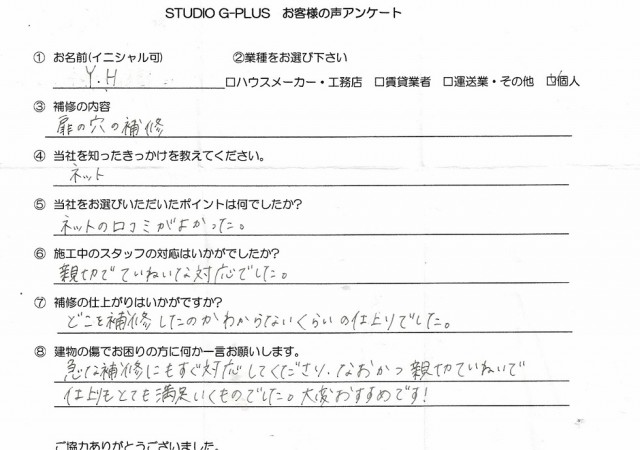 STUDIO G-PLUS　お客様の声アンケート
① お名前(イニシャル可)　②業種をお選び下さい
Y.H　□ハウスメーカー・工務店　□賃貸業者　□運送業・その他　☑個人
③ 補修の内容
扉の穴の補修
④ 当社を知ったきっかけを教えてください。
ネット
⑤ 当社をお選びいただいたポイントは何でしたか?
ネットの口コミがよかった。
⑥ 施工中のスタッフの対応はいかがでしたか?
親切でていねいな対応でした。
⑦ 補修の仕上がりはいかがですか?
どこを補修したのかわからないくらいの仕上りでした。
⑧ 建物の傷でお困りの方に何か一言お願いします。
急な補修にもすぐ対応してくださり、なおかつ親切ていねいで
仕上りもとても満足いくものでした。大変おすすめです!
ご協力ありがとうございました。